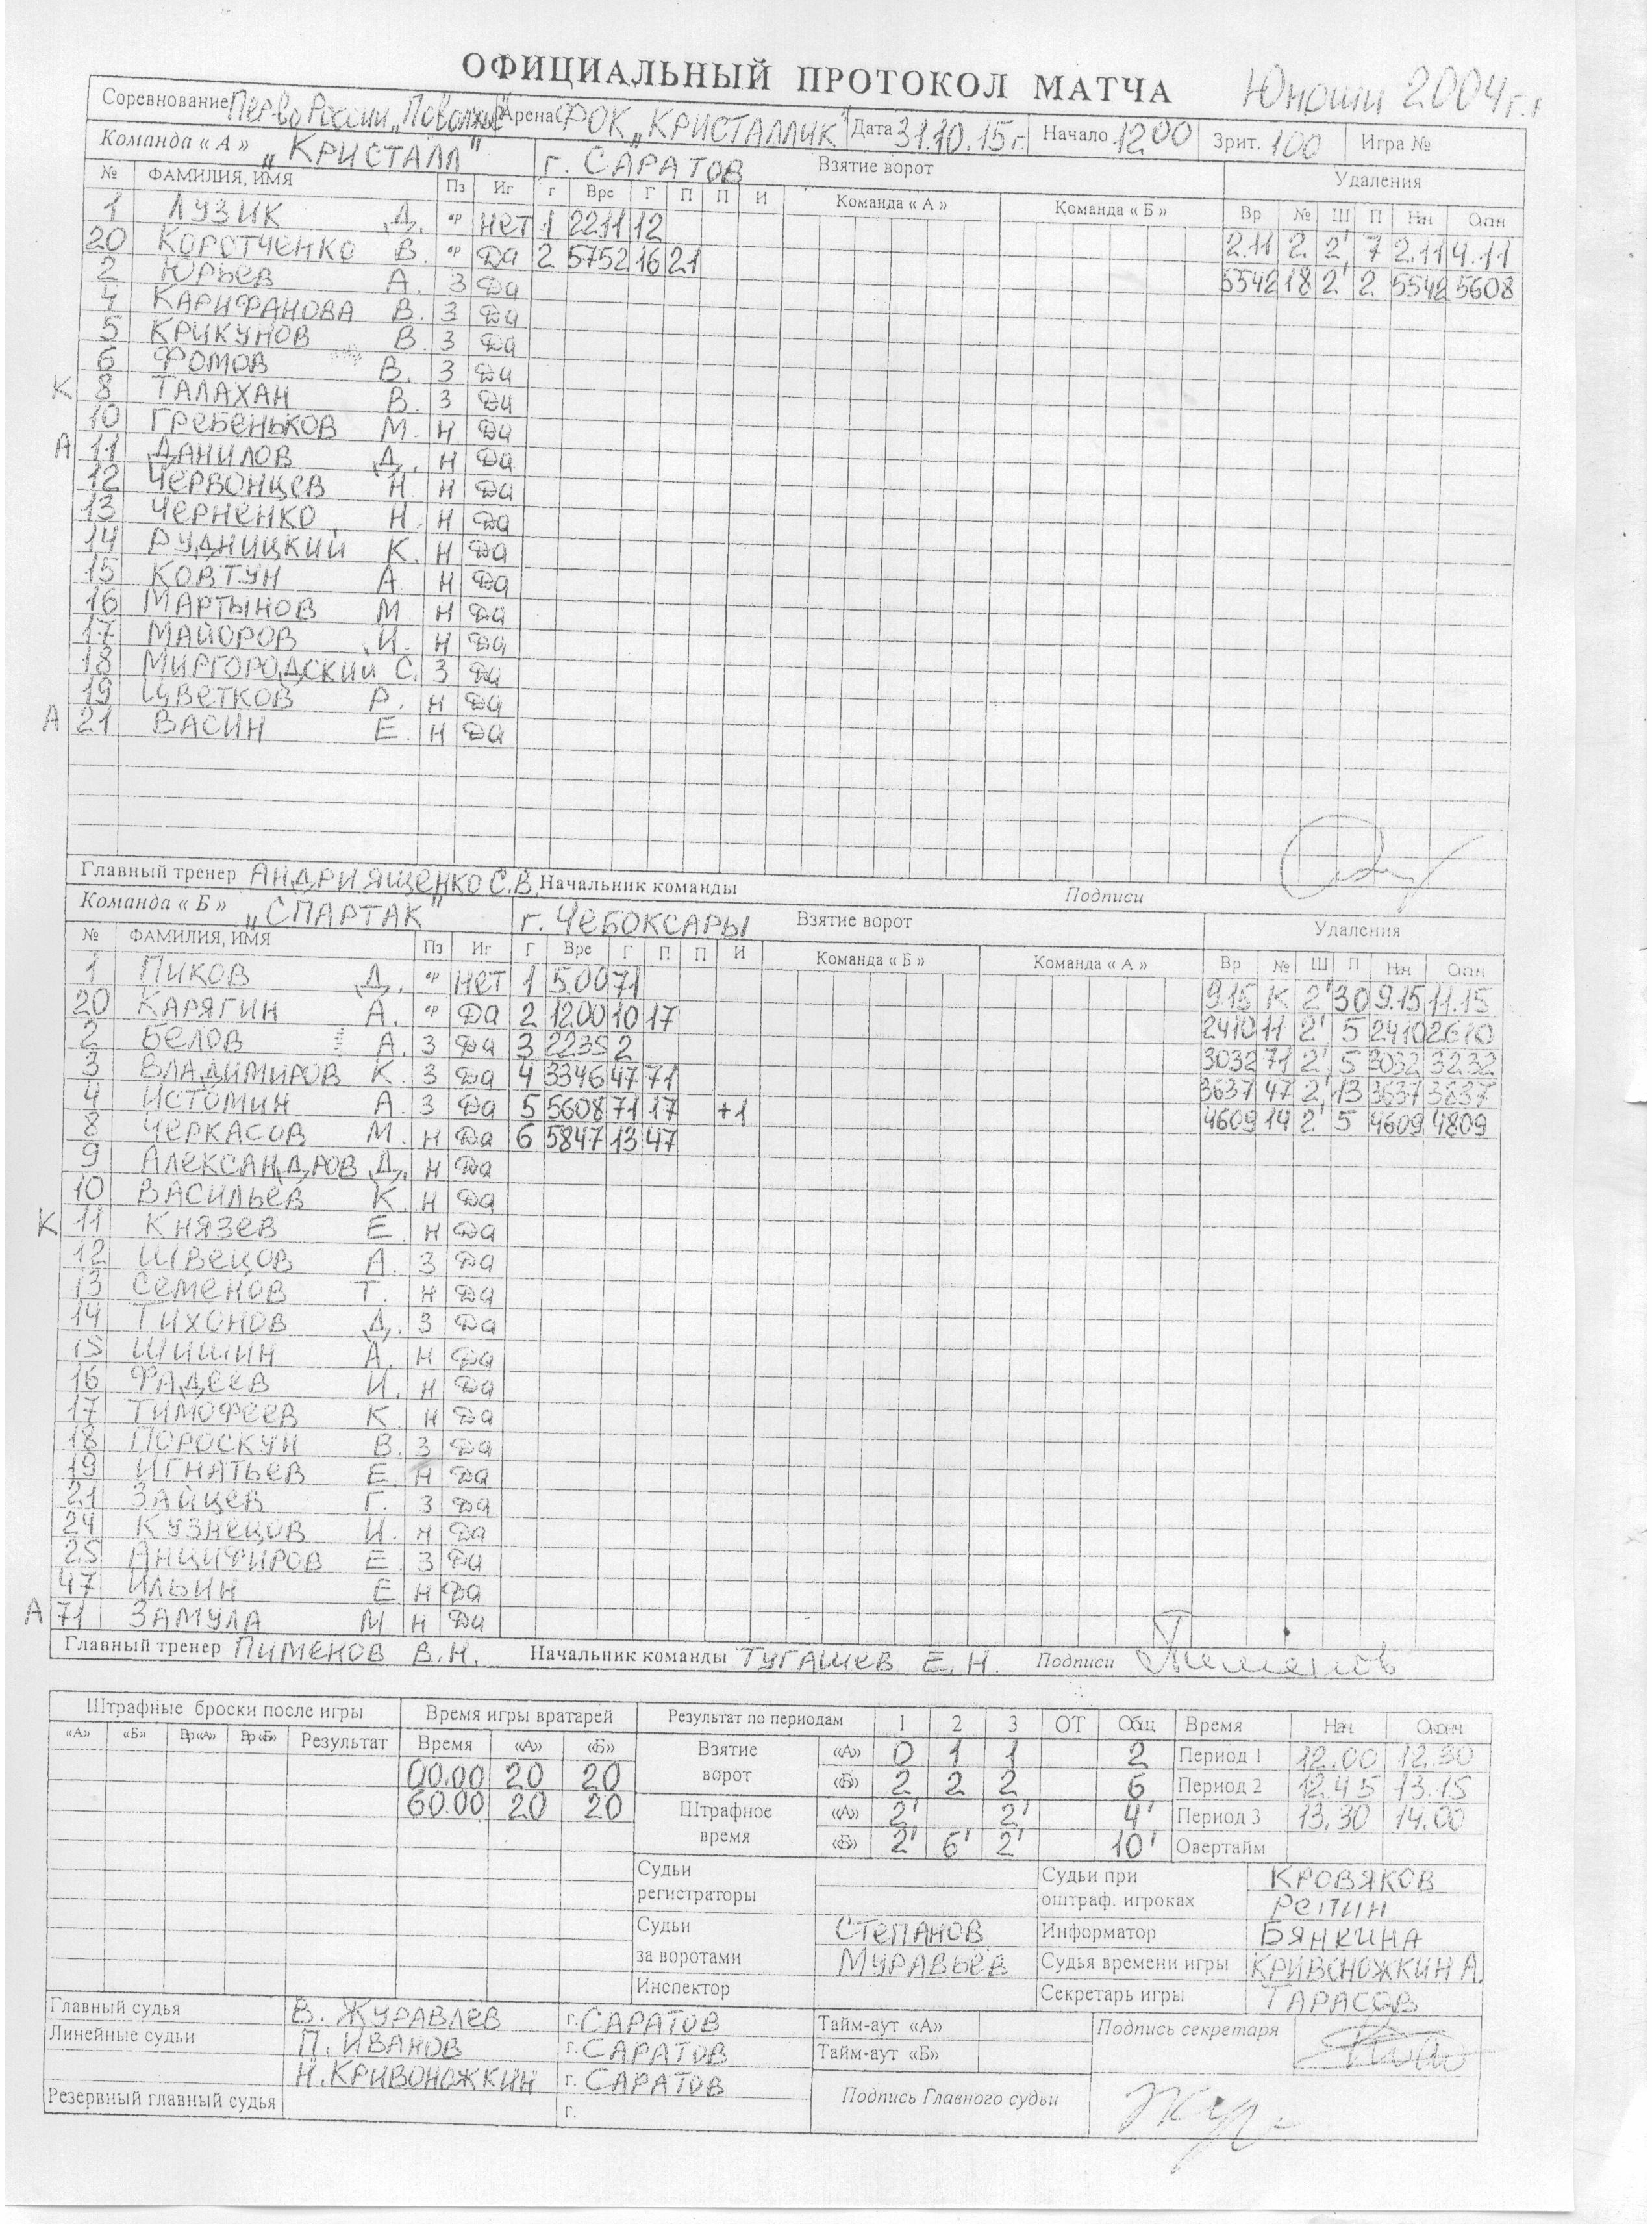 ОФИЦИАЛЬНЫЙ ПРОТОКОЛ МАТЧА Юноши 2004 г.
Соревнование Перво России „Поволжье" Арена ФОК „КРИСТАЛЛИК" Дата 31.10.15г. Начало 12 00 Зрит. 100 Игра №
Команда « А » „КРИСТАЛЛ" г. САРАТОВ Взятие ворот Удаления
№ ФАМИЛИЯ, ИМЯ Пз Иг Г Вре Г П П И Команда « А » Команда « Б » Вр № Ш П Нач Окон
1 ЛУЗИК Д. вр НЕТ 1 22 11 12 2.11 2 2' 7 2.11 4.11
20 КОРОТЧЕНКО В. вр Да 2 57 52 16 21 55 42 18 2' 2 55 42 56 08
2 ЮРЬЕВ А. З Да
4 КАРИФАНОВА В. З Да
5 КРИКУНОВ В. З Да
6 ФОМОВ В. З Да
К 8 ТАЛАХАН В. З Да
10 ГРЕБЕНЬКОВ М. Н Да
А 11 ДАНИЛОВ Д. Н Да
12 ЧЕРВОНЦЕВ Н. Н Да
13 ЧЕРНЕНКО Н. Н Да
14 РУДНИЦКИЙ К. Н Да
15 КОВТУН А Н Да
16 МАРТЫНОВ М. Н Да
17 МАЙОРОВ И. Н Да
18 МИРГОРОДСКИЙ С. З Да
19 ЦВЕТКОВ Р. Н Да
А 21 ВАСИН Е. Н Да
Главный тренер АНДРИЯЩЕНКО С.В. Начальник команды Подписи
Команда « Б » „СПАРТАК" г. ЧЕБОКСАРЫ Взятие ворот Удаления
№ ФАМИЛИЯ, ИМЯ Пз Иг Г Вре Г П П И Команда « Б » Команда « А » Вр № Ш П Нач Окон
1 ПИКОВ Д. вр НЕТ 1 5.00 71 9.15 К 2' 30 9.15 11.15
20 КАРЯГИН А. вр Да 2 12 00 10 17 24 10 11 2' 5 24 10 26 10
2 БЕЛОВ А. З Да 3 22 35 2 30 32 71 2' 5 30 32 32 32
3 ВЛАДИМИРОВ К. З Да 4 33 46 47 71 36 37 47 2' 13 36 37 38 37
4 ИСТОМИН А. З Да 5 56 08 71 17 +1 46 09 14 2' 5 46 09 48 09
8 ЧЕРКАСОВ М. Н Да 6 58 47 13 47
9 АЛЕКСАНДРОВ Д. Н Да
10 ВАСИЛЬЕВ К. Н Да
К 11 КНЯЗЕВ Е. Н Да
12 ШВЕЦОВ А. З Да
13 СЕМЕНОВ Т. Н Да
14 ТИХОНОВ Д. З Да
15 ШИШИН А. Н Да
16 ФАДЕЕВ И. Н Да
17 ТИМОФЕЕВ К Н Да
18 ПОРОСКУН В. З Да
19 ИГНАТЬЕВ Е. Н Да
21 ЗАЙЦЕВ Г. З Да
24 КУЗНЕЦОВ И. Н Да
25 АНЦИФИРОВ Е. З Да
47 ИЛЬИН Е Н Да
А 71 ЗАМУЛА М Н Да
Главный тренер ПИМЕНОВ В.Н. Начальник команды ТУГАШЕВ Е.Н. Подписи Пименов
Штрафные броски после игры Время игры вратарей Результат по периодам 1 2 3 ОТ Общ Время Нач Оконч
«А» «Б» Вр«А» Вр«Б» Результат Время «А» «Б» Взятие ворот «А» 0 1 1 2 Период 1 12.00 12.30
00.00 20 20 «Б» 2 2 2 6 Период 2 12.45 13.15
60.00 20 20 Штрафное время «А» 2' 2' 4' Период 3 13.30 14.00
«Б» 2' 6' 2' 10' Овертайм
Судьи регистраторы Судьи при оштраф. игроках КРОВЯКОВ
РЕПИН
Судьи за воротами СТЕПАНОВ Информатор БЯНКИНА
МУРАВЬЕВ Судья времени игры КРИВОНОЖКИН А.
Инспектор Секретарь игры ТАРАСОВ
Главный судья В. ЖУРАВЛЕВ г. САРАТОВ Тайм-аут «А» Подпись секретаря
Линейные судьи П. ИВАНОВ г. САРАТОВ Тайм-аут «Б»
Н. КРИВОНОЖКИН г. САРАТОВ Подпись Главного судьи
Резервный главный судья г.